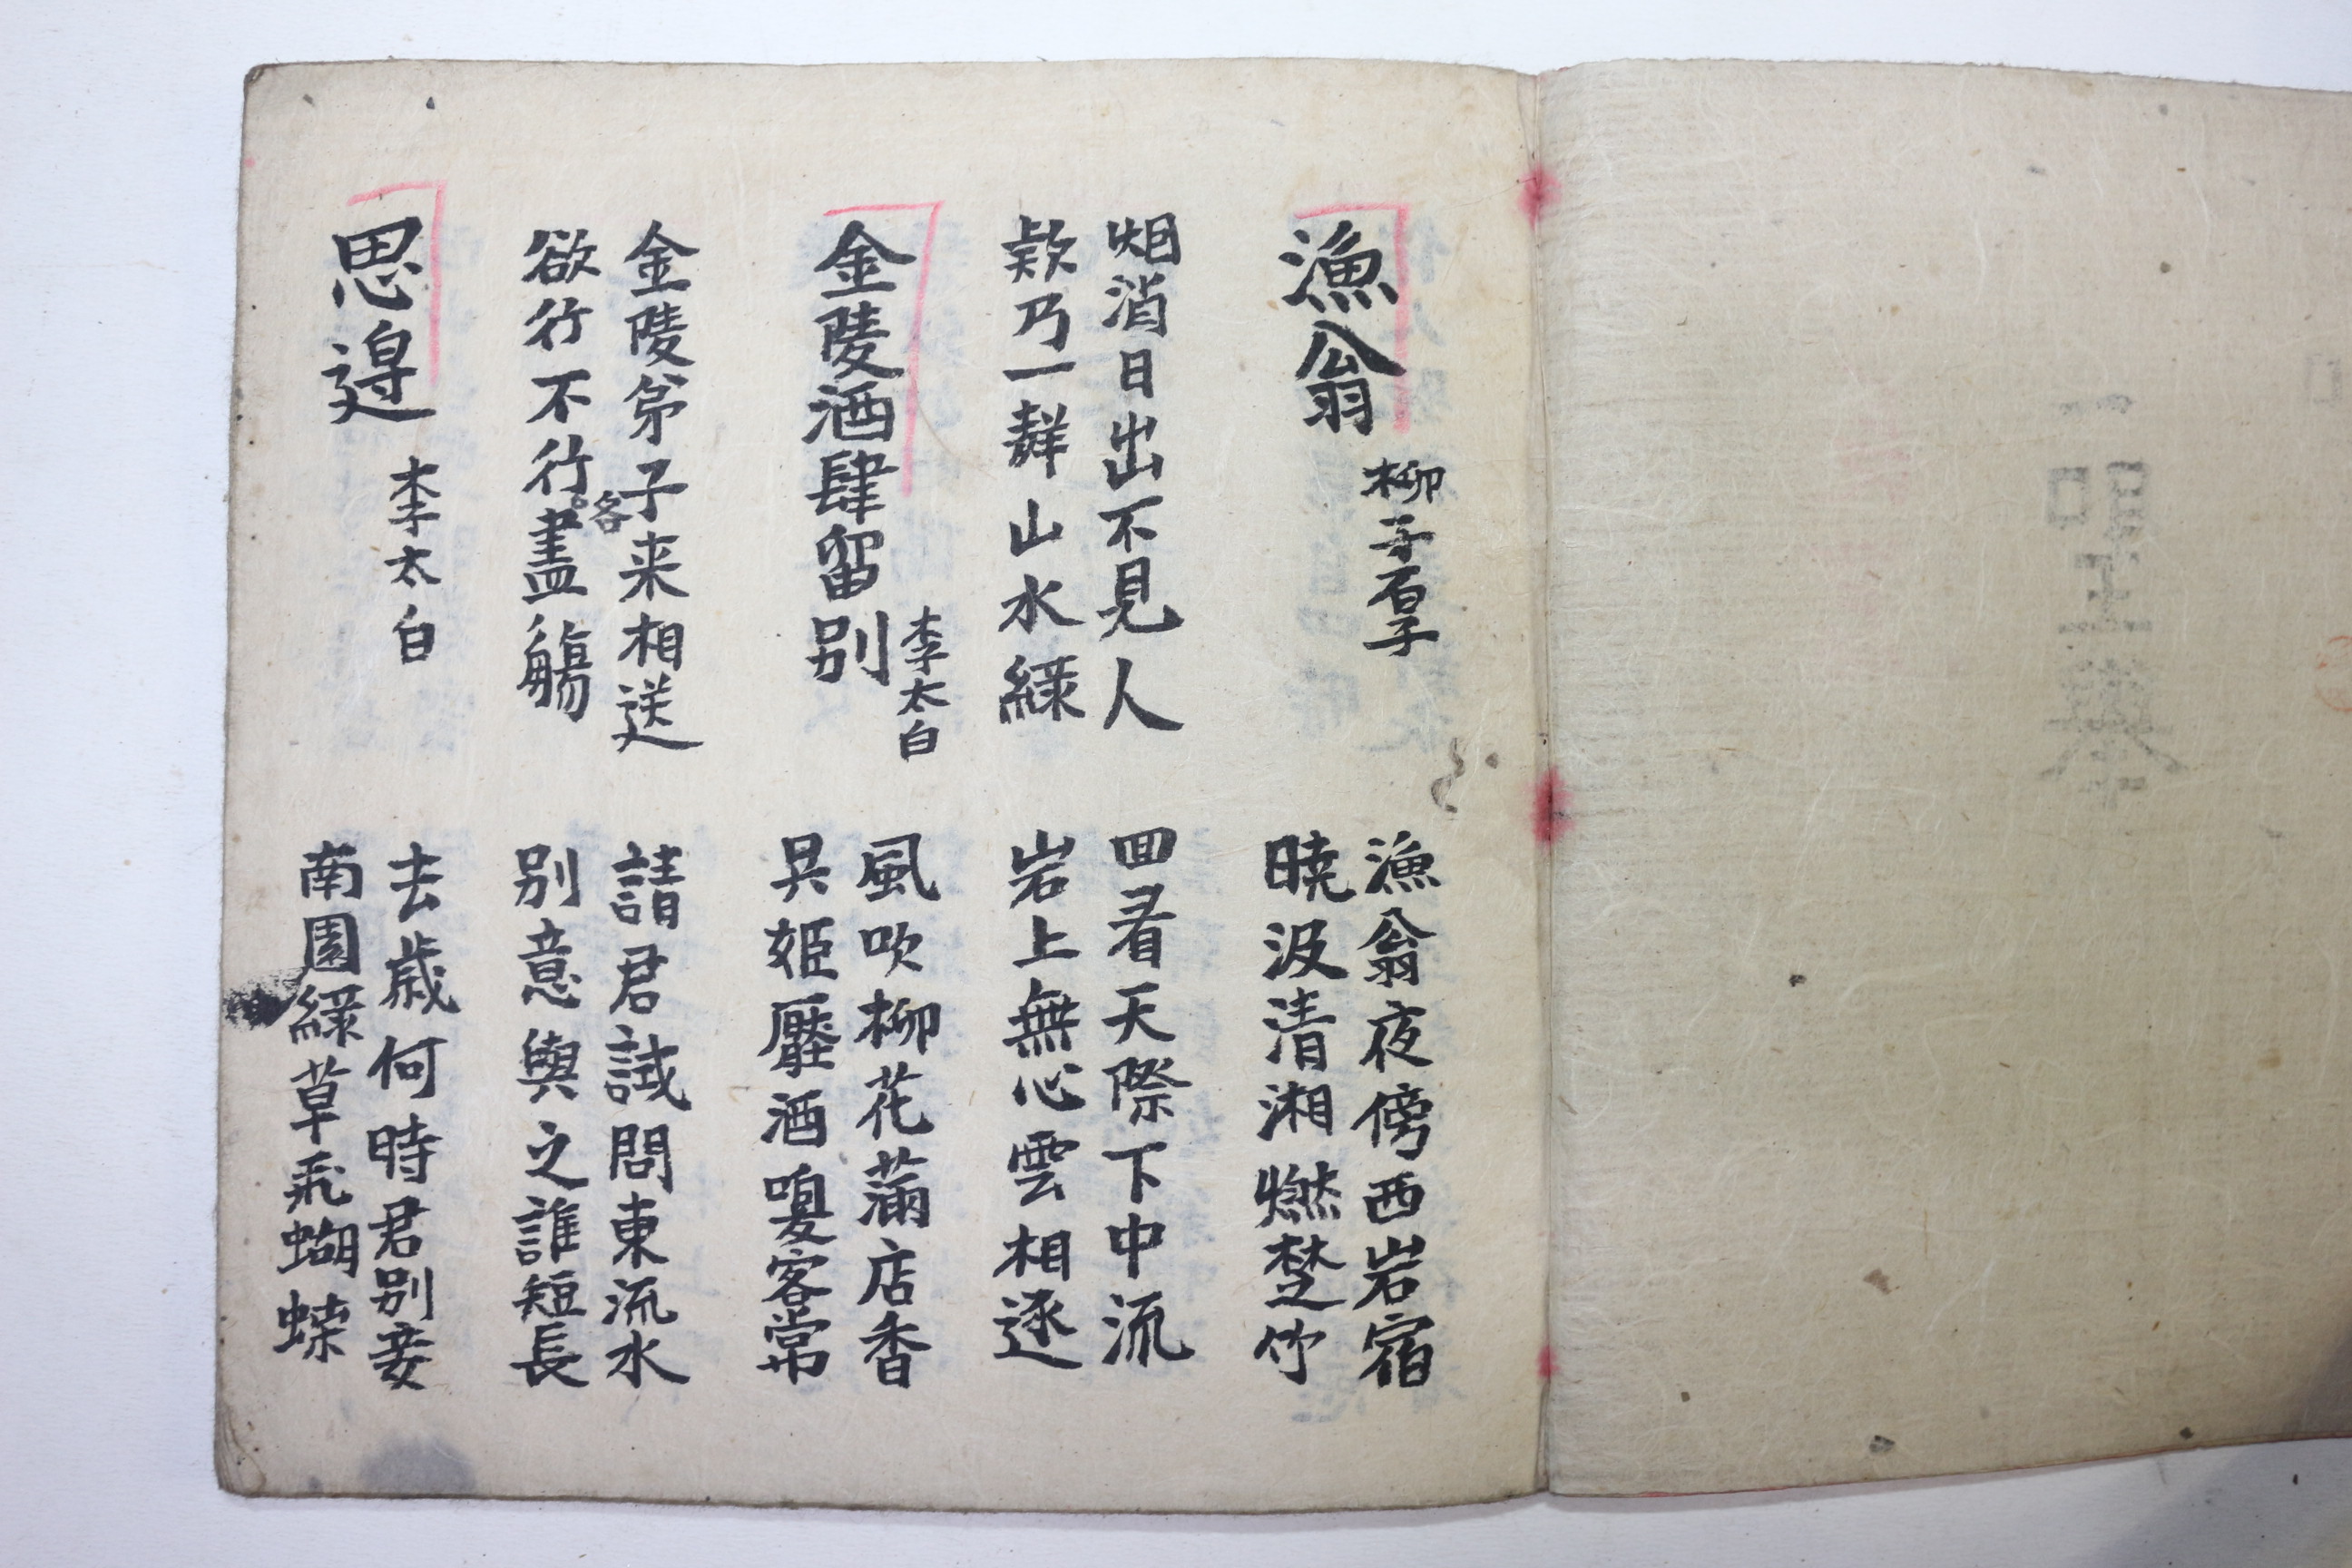 漁翁 柳子厚
漁翁夜傍西岩宿
暁汲清湘燃楚竹
烟消日出不見人
欸乃一聲山水綠
回看天際下中流
岩上無心雲相逐
金陵酒肆留別 李太白
風吹柳花滿店香
吳姬壓酒喚客常
金陵弟子来相送
欲行不行各盡觴
請君試問東流水
別意與之誰短長
思邉 李太白
去歲何時君別妾
南園綠草飛蝴蝶